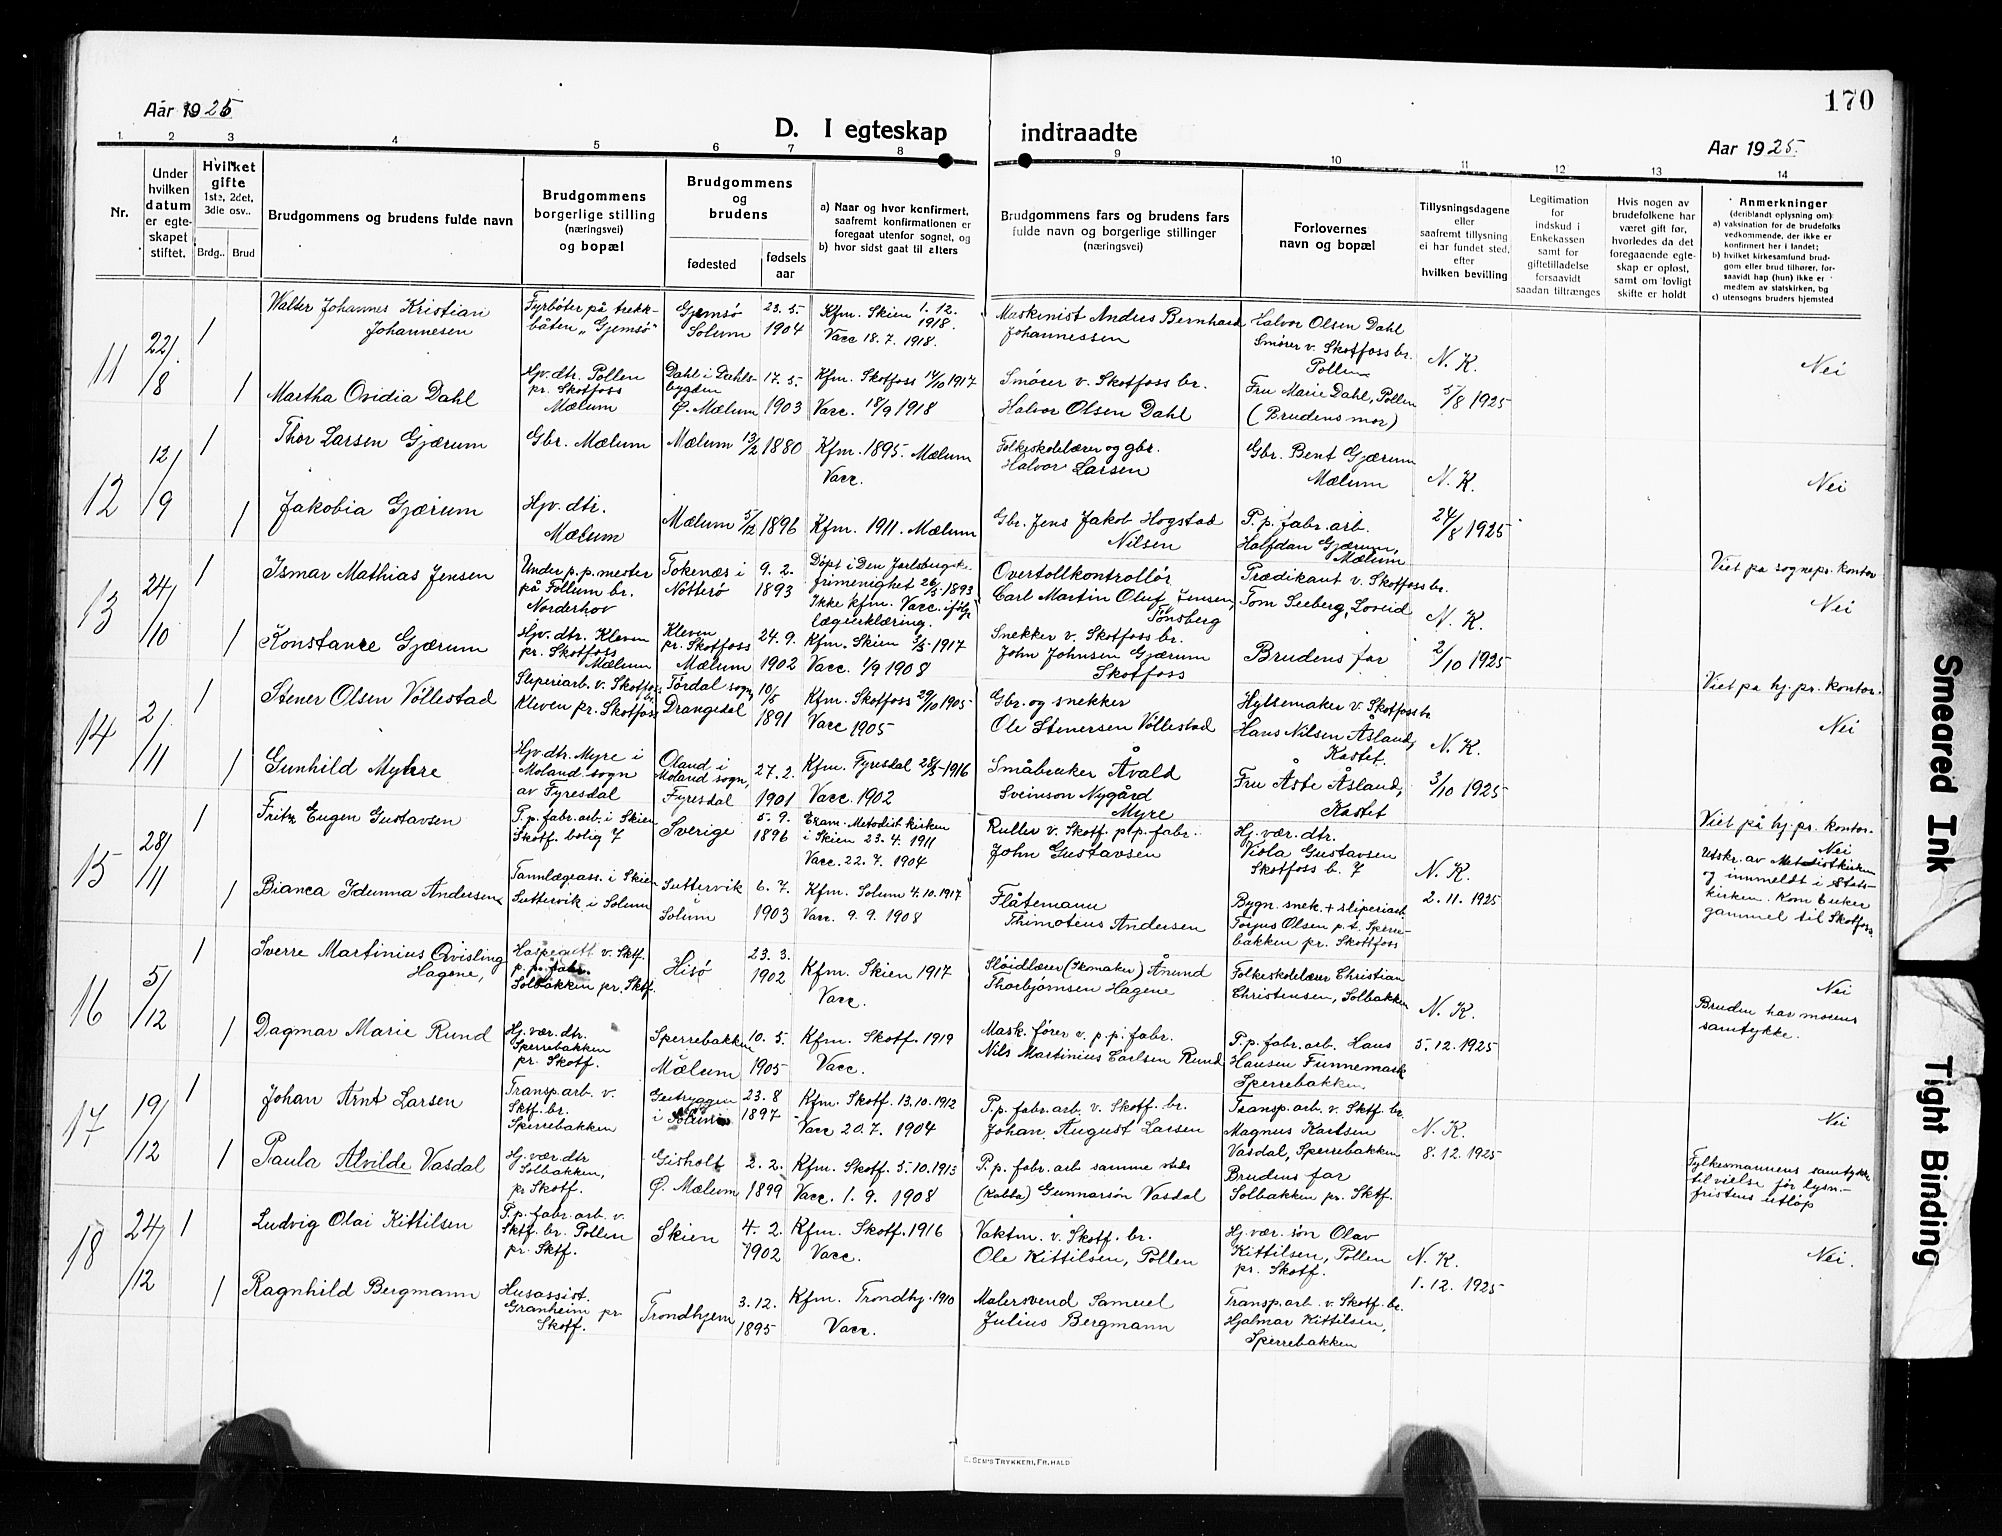 170
Aar 1925
D. I egteskap indtraadte
Aar 1925.
1. 2 3 4 5 6 7 8 9 10 11 12 13 14
Nr.
Under hvilken datum er egteskapet stiftet.
Hvilket gifte 1ste, 2det, 3die osv..
Brdg.. Brud
Brudgommens og brudens fulde navn
Brudgommens borgerlige stilling (næringsvei) og bopæl
Brudgommens og brudens
fødested
fødselsaar
a) Naar og hvor konfirmert, saafremt konfirmationen er foregaat utenfor sognet, og
b) hvor sidst gaat til alters
Brudgommens fars og brudens fars fulde navn og borgerlige stillinger (næringsvei)
Forlovernes navn og bopæl
Tillysningsdagene eller saafremt tillysning ei har fundet sted, efter hvilken bevilling
Legitimation for indskud i Enkekassen samt for giftetilladelse forsaavidt saadan tiltrænges
Hvis nogen av brudefolkene har været gift før, hvorledes da det foregaaende egteskap er opløst, samt om lovligt skifte er holdt
Anmerkninger
(deriblandt oplysning om):
a) vaksination for de brudefolks vedkommende, der ikke er konfirmert her i landet;
b) hvilket kirkesamfund brudgom eller brud tilhører, forsaavidt hap (hun) ikke er medlem av statskirken, og
c) utensogns bruders hjemsted
11
22/8
1
Walter Johannes Kristian
Johannesen
Fyrbøter på trekkbåten "Gjemsø"
Gjemsø
Solum
23. 5.
1904
Kfm. Skien 1. 12.
1918.
Vacc 18. 7. 1918.
Maskinist Anders Bernhard
Johannessen
Halvor Olsen Dahl
Smører v. Skotfoss br.
Pollen
N. K.
5/8 1925
Nei
1
Martha Ovidia Dahl
Hv. dtr. Pollen
pr. Skotfoss
Mælum
Dahl i Dahlsbygden
Ø. Mælum
17. 5.
1903
Kfm. Skotfoss 14/10 1917
Vacc. 18/9 1918
Smører v. Skotfoss br.
Halvor Olsen Dahl
Fru Marie Dahl, Pollen
(Brudens mor)
12
12/9
1
Thor Larsen Gjærum
Gbr. Mælum
Mælum
13/2 1880
Kfm. 1895. Mælum
Vacc.
Folkeskolelærer og gbr.
Halvor Larsen
Gbr. Bent Gjærum
Mælum
N. K.
24/8 1925
Nei
1
Jakobia Gjærum
Hjv. dtr.
Mælum
Mælum
5/12 1896
Kfm. 1911. Mælum
Gbr. Jens Jakob Hogstad
Nilsen
P. p. fabr. arb.
Halfdan Gjærum,
Mælum
13
24/10
1
Ismar Mathias Jensen
Under p. p. mester
på Follum br.
Norderhov
Tokenæs i
Nøtterø
9. 2.
1893
Døpt i Den Jarlsbergsk.
frimenighet 26/3 1893
Ikke kfm. Vacc. ifølg
lægeerklæring.
Overtollkontrollør
Carl Martin Oluf Jensen,
Tønsberg
Prædikant v. Skotfoss br.
Tom Seeberg, Loveid
N. K.
2/10 1925
Viet på sognepr. kontor
Nei
1
Konstance Gjærum
Hjv. dtr. Kleven
pr. Skotfoss
Mælum
Kleven
pr. Skotfoss
Mælum
24. 9.
1902
Kfm. Skien 3/5 1917
Vacc 1/9 1908
Snekker v. Skotfoss br.
John Johnsen Gjærum
Skotfoss
Brudens far
14
2/11
1
Stener Olsen Vøllestad
Sliperiarb. v. Skotfoss br.
Kleven pr. Skotfoss
Tørdal sogn
Drangedal
10/5
1891
Kfm. Skotfoss 29/10 1905
Vacc 1905
Gbr. og snekker
Ole Stenersen Vøllestad
Hylsemaker v. Skotfoss br
Hans Nilsen Åsland,
Kastet.
N. K.
3/10 1925
Viet på hj. pr. kontor.
Nei
1
Gunhild Myhre
Hjv. dtr. Myre i
Moland sogn
av Fyresdal
Oland i
Moland sogn,
Fyresdal
27. 2.
1901
Kfm. Fyresdal 28/5 1916
Vacc. 1902
Småbruker Åvald
Sveinson Nygård
Myre
Fru Åste Åsland,
Kastet
15
28/11
1
Fritz Eugen Gustavsen
P. p. fabr. arb. i Skien
Skotf. bolig 7
Sverige
5. 9.
1896
Exam. Metodistkirken
i Skien 23. 4. 1911
Vacc. 22. 7. 1904
Ruller v. Skotf. p. p. fabr.
John Gustavsen
Hj. vær. dtr.
Viola Gustavsen
Skotfoss b. 7
N. K.
2. 11. 1925
Viet på hj. pr. kontor.
Nei
Utskr. av Metodistkirken
og innmeldt i Statskirken. Kom 6 uker
gammel til Skotfoss
1
Bianca Idunna Andersen
Tannlægeass. i Skien
Suttervik i Solum
Suttervik
Solum
6. 7.
1903
Kfm. Solum 4. 10. 1917
Vacc. 9. 9. 1908
Flåtemann
Thimoteus Andersen
Bygn. snek. + sliperiarb.
Torjus Olsen p. t. Sperrebakken pr. Skotfoss
16
5/12
1
Sverre Martinius Qvisling
Hagene,
Haspegutt v. Sktf.
p. p. fabr.
Solbakken pr. Sktf.
Hisø
23. 3.
1902
Kfm. Skien 1917
Vacc.
Sløidlærer (Skomaker) Ånund
Thorbjørnsen Hagene
Folkeskolelærer Christian
Christensen, Solbakken
N. K.
5. 12. 1925
Nei
Bruden har morens
samtykke.
1
Dagmar Marie Rund
Hj. vær. dtr.
Sperrebakken
pr. Skotf.
Sperrebakken
Mælum
10. 5.
1905
Kfm. Skotf. 1919
Vacc.
Mask. fører v. p. p. fabr.
Nils Martinius Carlsen Rund
P. p. fabr. arb. Hans
Hansen Funnemark
Sperrebakken
17
19/12
1
Johan Arnt Larsen
Transp. arb. v.
Sktf. br.
Sperrebakken
i Solum
23. 8
1897
Kfm. Skotf. 13. 10. 1912
Vacc 20. 7. 1904
P. p. fabr. arb. v. Skotf. br.
Johan August Larsen
Transp. arb. v. Sktf. br.
Magnus Karlsen
Vasdal, Sperrebakken
N. K.
8. 12. 1925
Nei
1
Paula Alvilde Vasdal
Hj. vær. dtr
Solbakken,
pr Skotf.
Gisholt
Ø. Mælum
2. 2.
1899
Kfm. Skotf. 5. 10. 1913
Vacc. 1. 9. 1908
P. p. fabr. arb samme sted
(Kabba) Gunnarsøn Vasdal
Brudens far
Solbakken pr. Sktf.
Fylkesmannens samtykke
til vielse før lysnfristens utløp
18
24/12
1
Ludvig Olai Kittilsen
P. p. fabr. arb. v.
Sktf. br. Pollen
pr. Sktf.
Skien
4. 2.
1902
Kfm. Skotf. 1916
Vacc.
Vaktm. v. Skotf. br.
Ole Kittilsen, Pollen
Hj. vær. søn Olav
Kittilsen, Pollen
pr. Skotf.
N. K.
1. 12. 1925
Nei.
1
Ragnhild Bergmann
Husassist.
Granheim pr
Skotf.
Trondhjem
3. 12.
1895
Kfm. Trondhj. 1910
Vacc.
Malersvend Samuel
Julius Bergmann
Transp. arb. v. Skotf. br.
Hjalmar Kittilsen,
Sperrebakken
E. SEM'S TRYKKERI, FR. HALD
Smeared Ink
Tight Binding